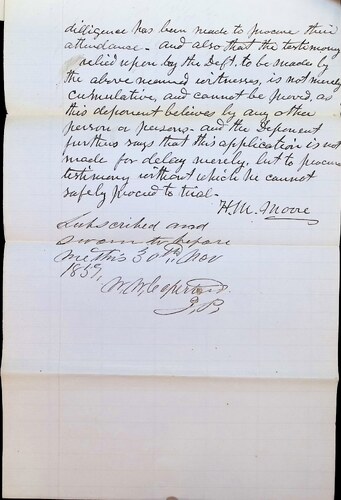 dilligence has been made to procure their
attendance - and also that the testimony
relied upon by the Deft. to be made by
the above named witnesses, is not merely
cumulative, and cannot be proved, as
this deponent believes by any other
person or persons - and the Deponent
further says that this application is not
made for delay merely, but to procure
testimony without which he cannot
safely proceed to trial -
H. M. Moore
Subscribed and
sworn to before
me this 30th Nov
1859,
J. P.